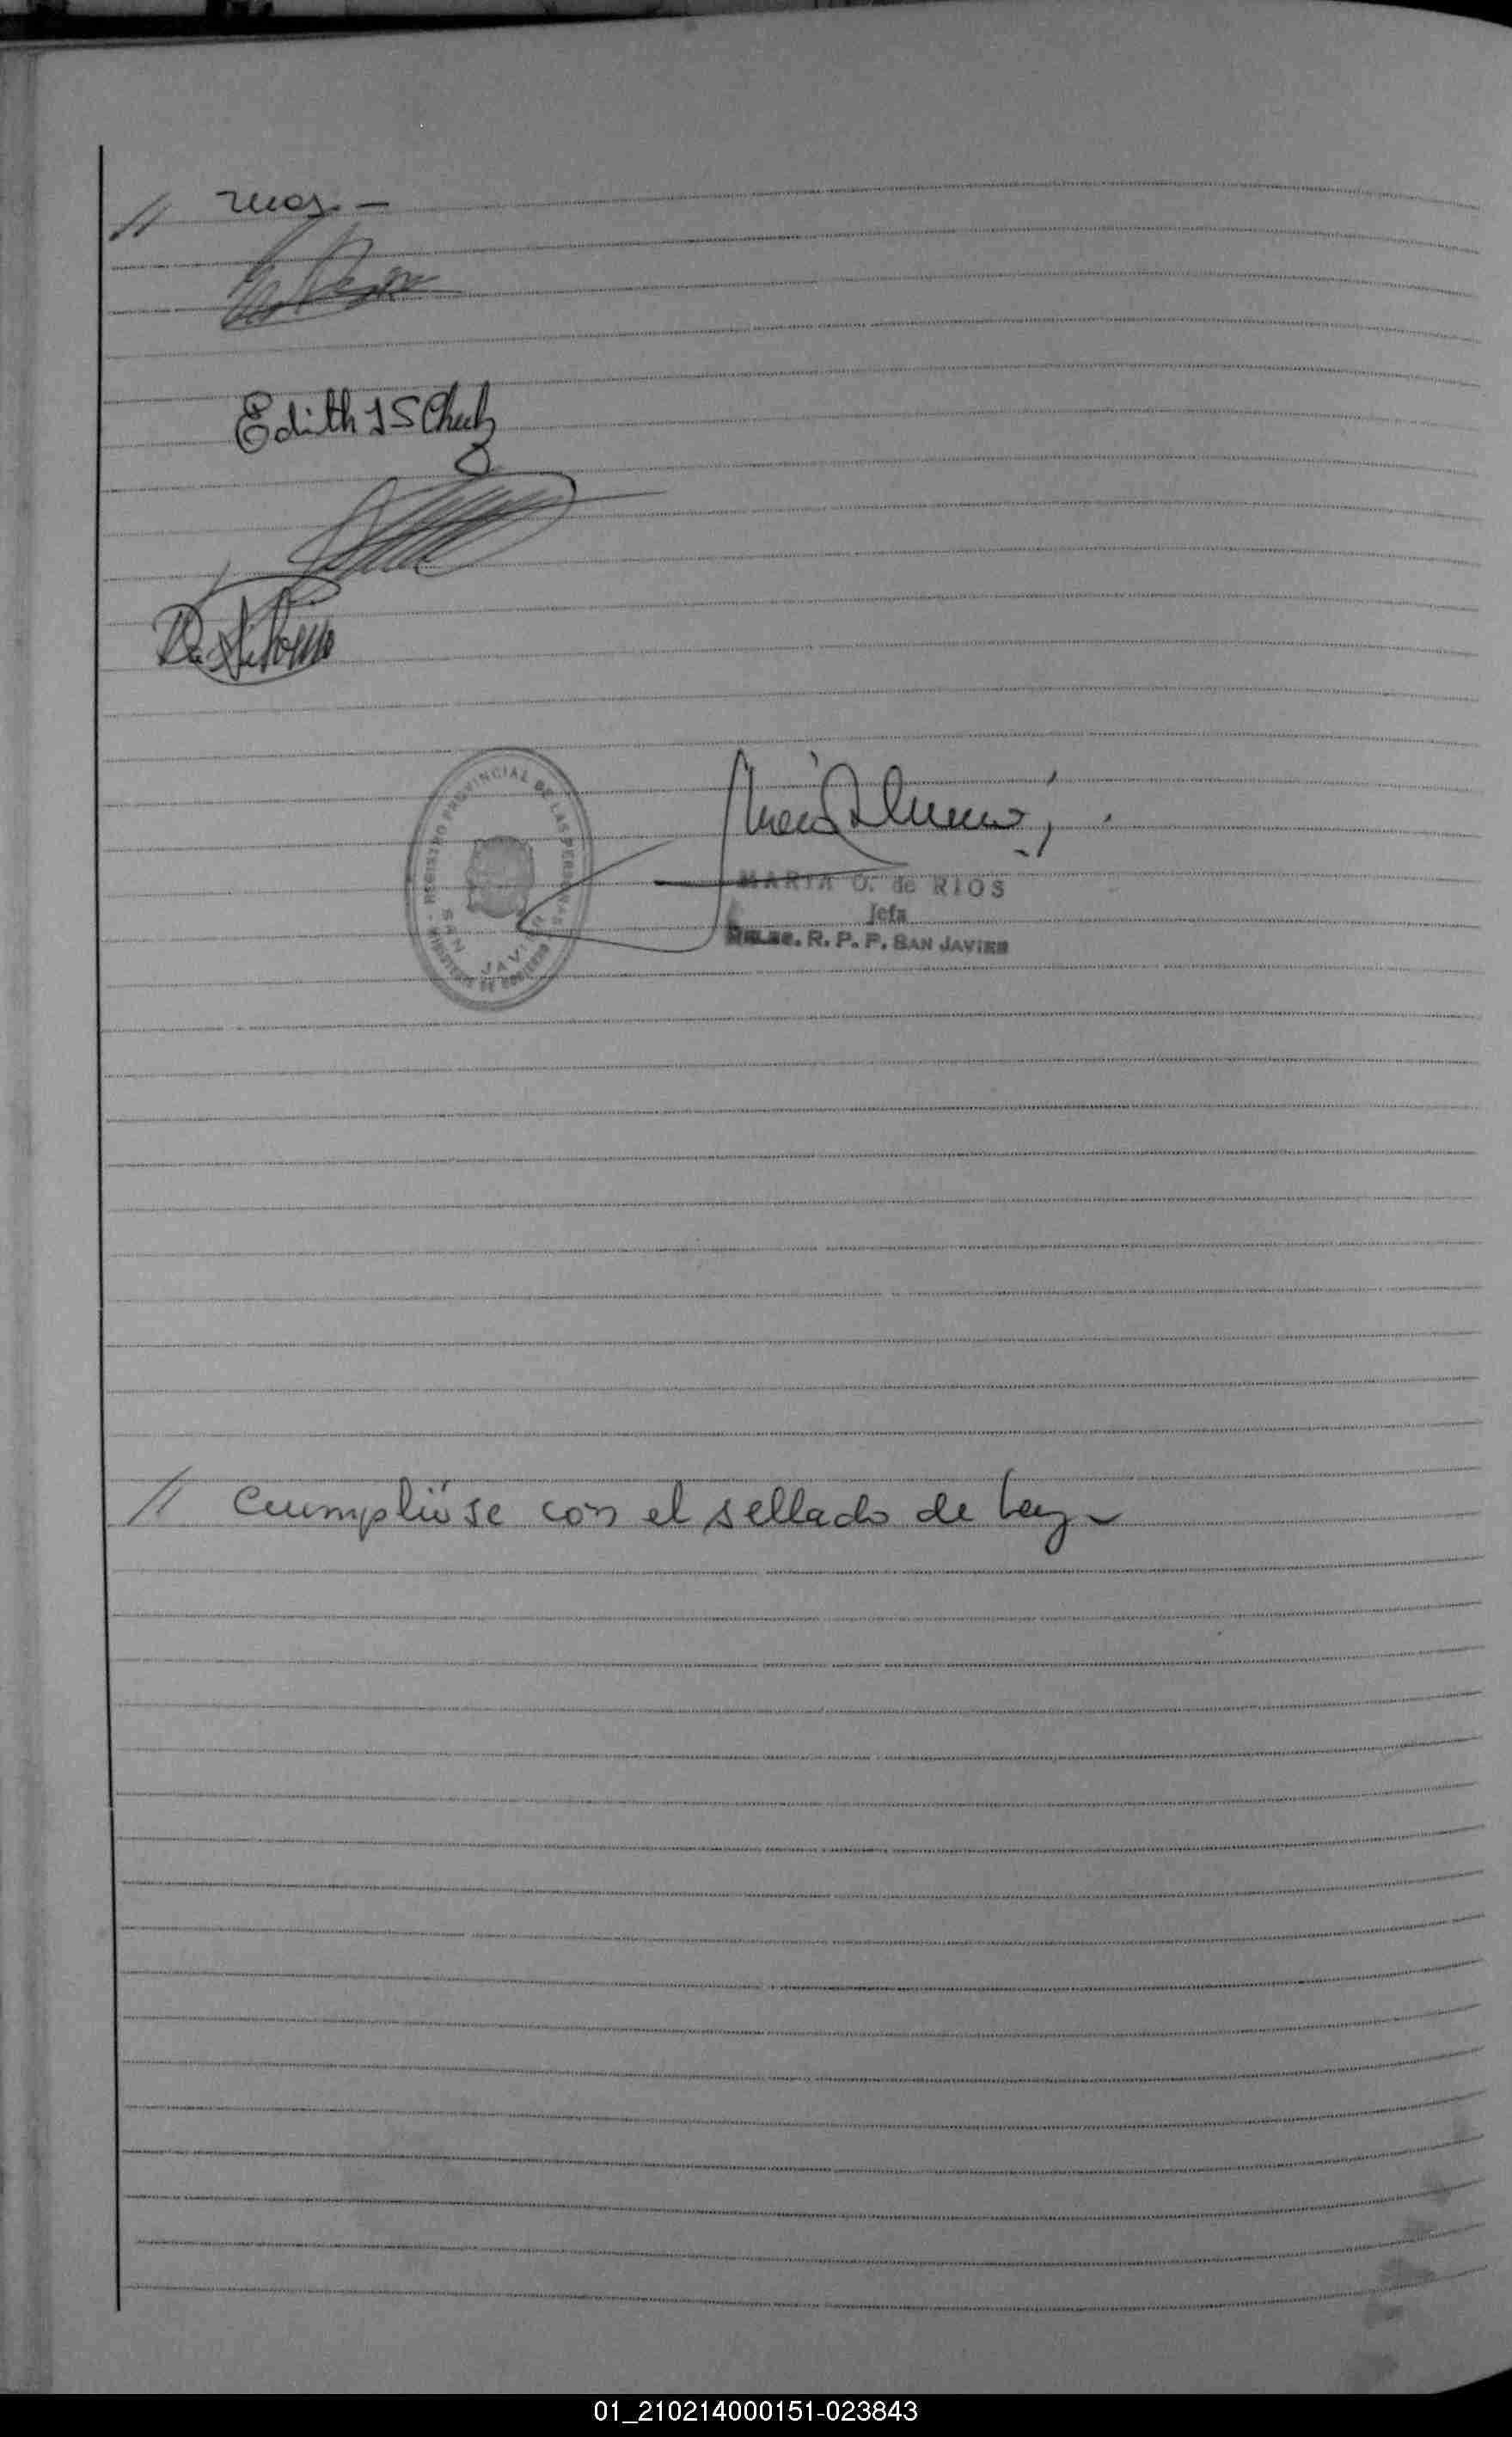 // mos.-
Edith I Schutz
REGISTRO PROVINCIAL DE LAS PERSONAS
MINISTERIO DE GOBIERNO
SAN JAVIER
MARIA O. de RIOS
Jefa
Deleg. R. P. P. SAN JAVIER
// Cumplióse con el sellado de Ley-
01_210214000151-023843